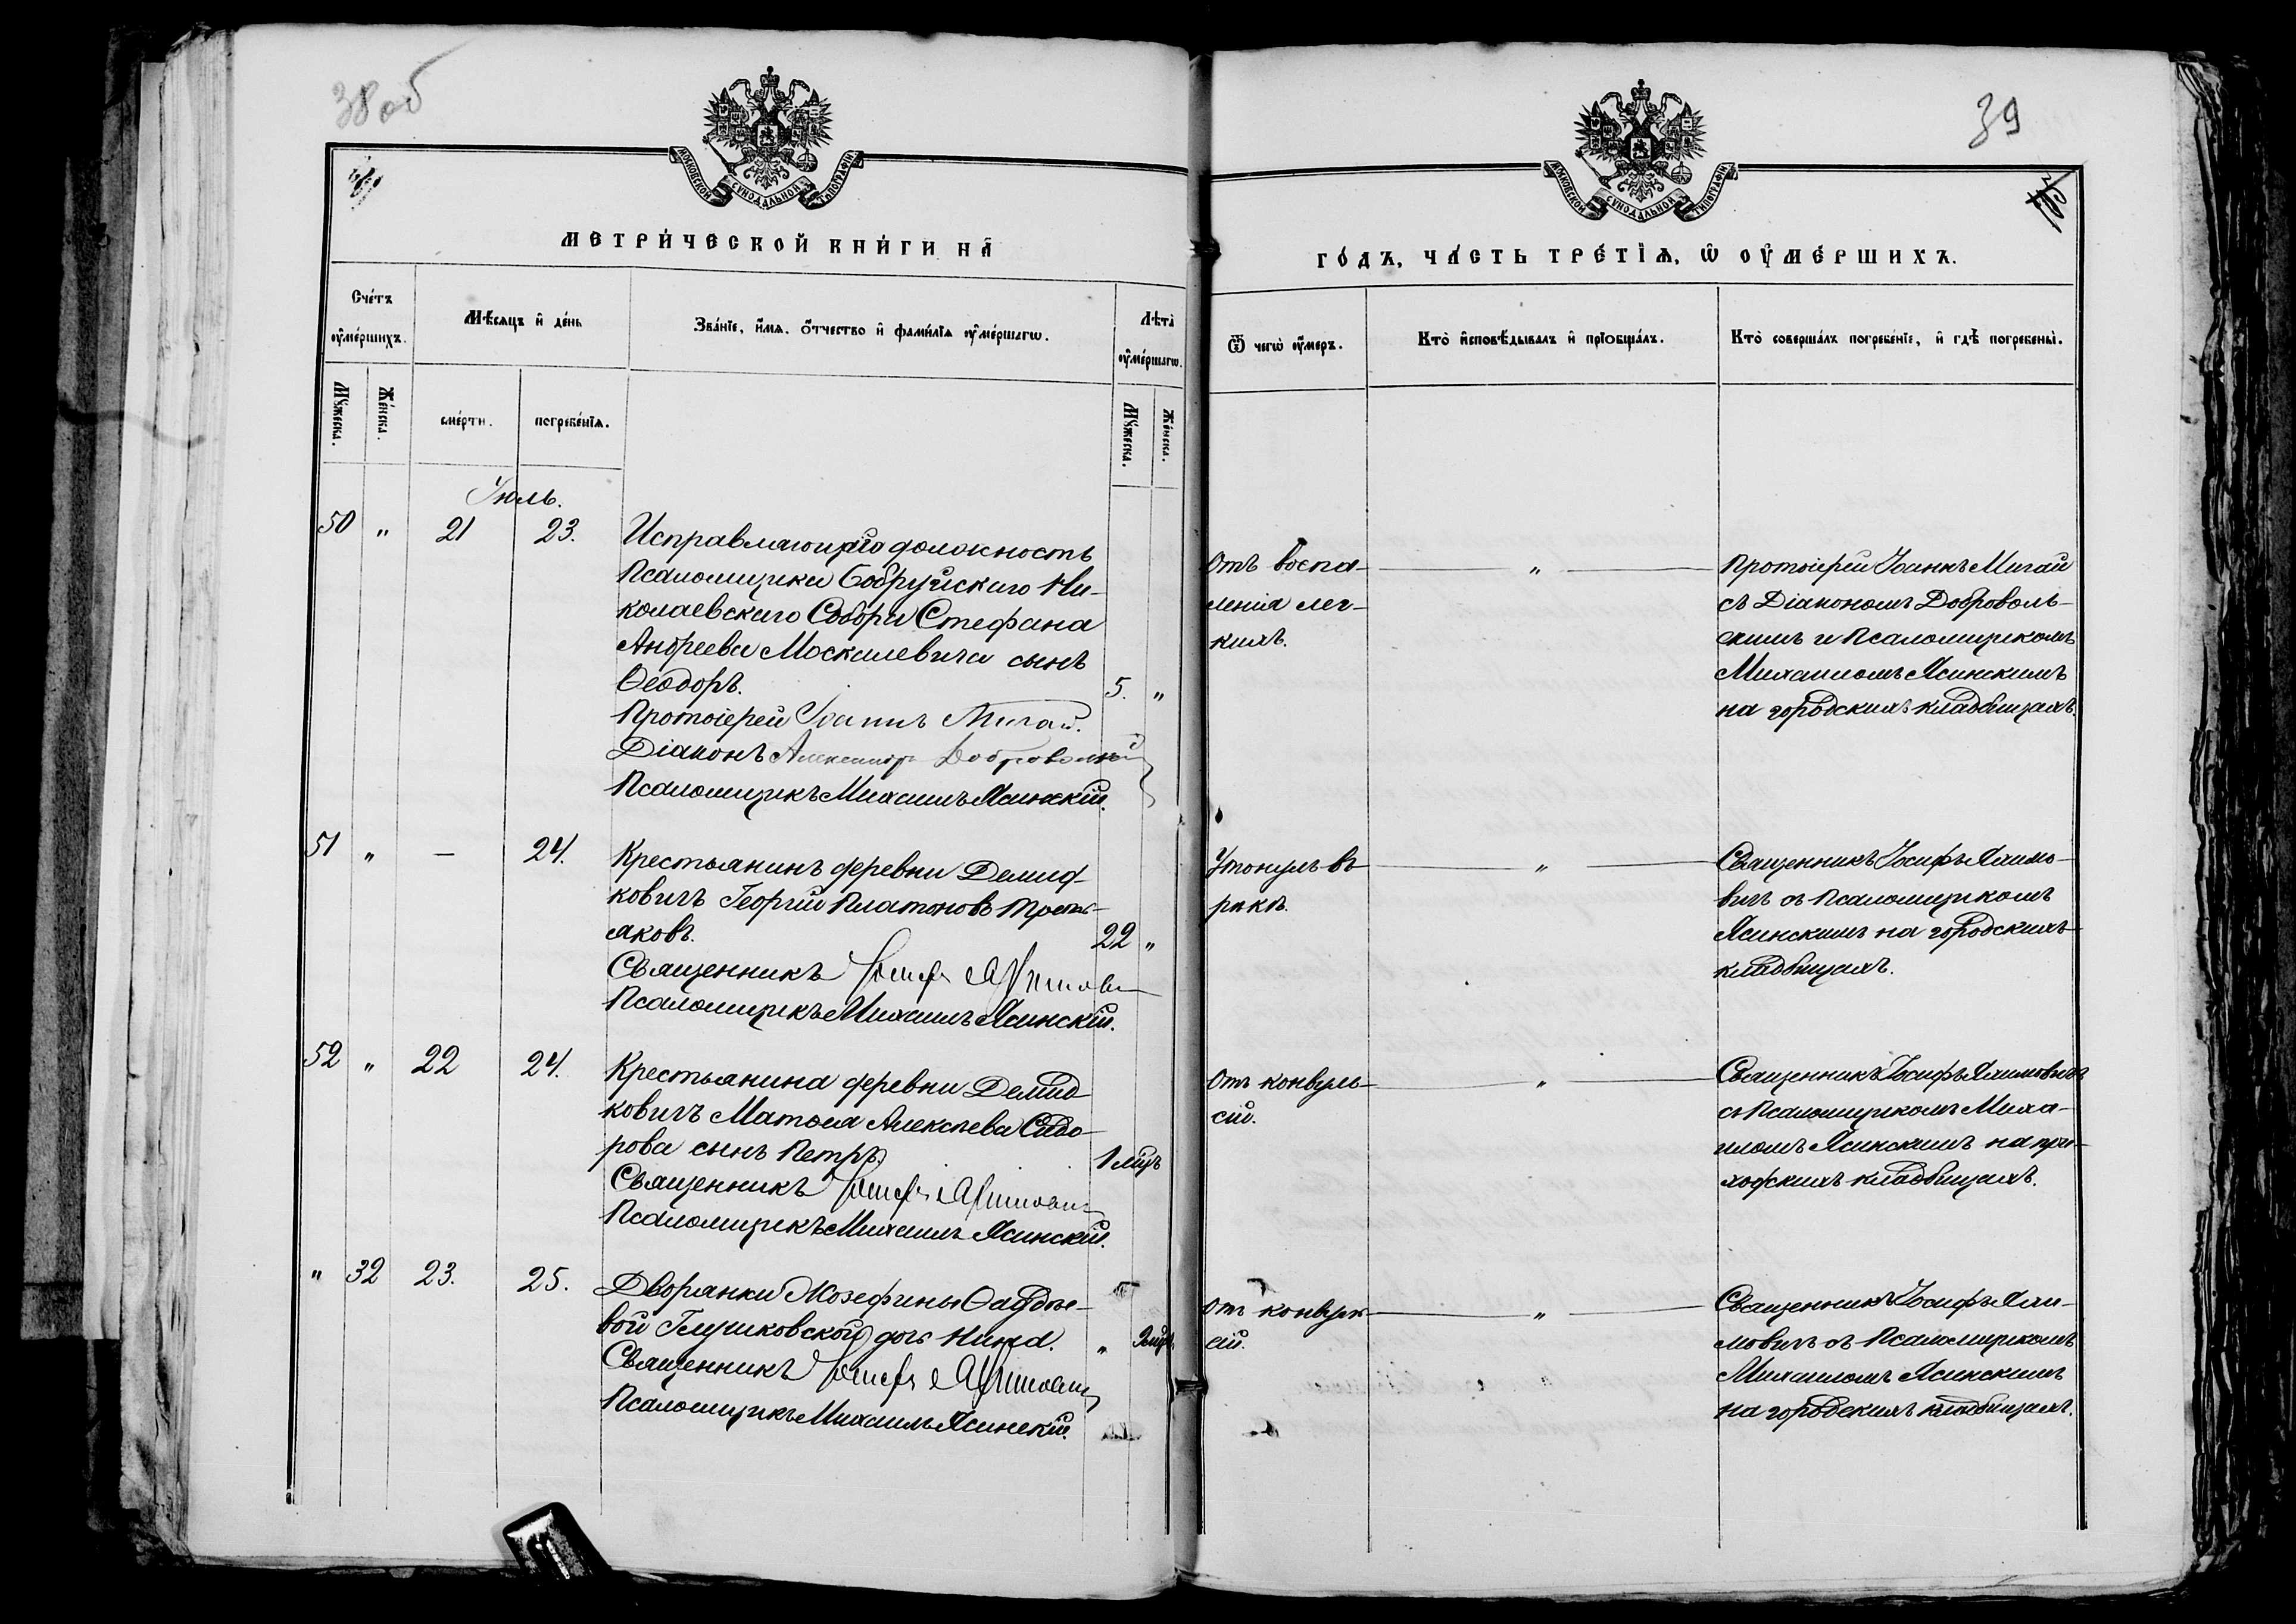 38 об
39
МОСКОВСКОЙ СѴНОДАЛЬНОЙ ТИПОГРАФІИ
МОСКОВСКОЙ СѴНОДАЛЬНОЙ ТИПОГРАФІИ
МЕТРИ́ЧЕСКОЙ КНИ́ГИ НА̀
ГО́ДЪ, ЧА́СТЬ ТРЕ́ТІѦ, Ѡ҆ ОУ҆МЕ́РШИХЪ.
Сче́тъ оу҆ме́ршихъ.
Мѣ́сяцъ и҆ де́нь
Зва́нїе, и҆́мя, ѻ҆́тчество и҆ фами́лїя оу҆ме́ршагѡ.
Лѣ́та оу҆ме́ршагѡ.
Ѿ чегѡ̀ оу҆́меръ.
Кто̀ и҆сповѣ́дывалъ и҆ прїобща́лъ.
Кто̀ соверша́лъ погребе́нїе, и҆ гдѣ̀ погребены̀.
Мꙋ́жеска.
Же́нска.
сме́рти.
погребе́нїя.
Мꙋ́жеска.
Же́нска.
Іюль.
50 " 21 23. Исправляющаго должность
Псаломщика Бобруйскаго Ни-
колаевскаго Собора Стефана
Андреева Москалевича сынъ
Ѳеодоръ. 5. "
Протоіерей Іоаннъ Мигай.
Діаконъ Александръ Добровольскій
Псаломщикъ Михаилъ Ясинскій.
Отъ воспа-
ленія лег-
кихъ.
"
Протоіерей Іоаннъ Мигай
съ Діакономъ Доброволь-
скимъ и Псаломщикомъ
Михаиломъ Ясинскимъ
на городскихъ кладбищахъ.
51 " — 24. Крестьянинъ деревни Демид-
ковичъ Георгій Платоновъ Треть-
яковъ. 22 "
Священникъ Іосифъ
Псаломщикъ Михаилъ Ясинскій.
Утонулъ въ
рѣкѣ.
"
Священникъ Іосифъ Якимо-
вичъ съ Псаломщикомъ
Ясинскимъ на городскихъ
кладбищахъ.
52 " 22 24. Крестьянина деревни Демид
ковичъ Матѳея Алексѣева Сидо-
рова сынъ Петръ. 1 мѣц
Священникъ Іосифъ
Псаломщикъ Михаилъ Ясинскій.
Отъ конвуль-
сій.
"
Священникъ Іосифъ Якимовичъ
съ Псаломщикомъ Миха-
иломъ Ясинскимъ на при-
ходскихъ кладбищахъ.
" 32 23. 25. Дворянки Іозефины Ѳаддѣе-
вой Глушковской дочь Нина. "
Священникъ Іосифъ
Псаломщикъ Михаилъ Ясинскій.
Отъ конвуль
сій.
"
Священникъ Іосифъ Яки-
мовичъ съ Псаломщикомъ
Михаиломъ Ясинскимъ
на городскихъ кладбищахъ.